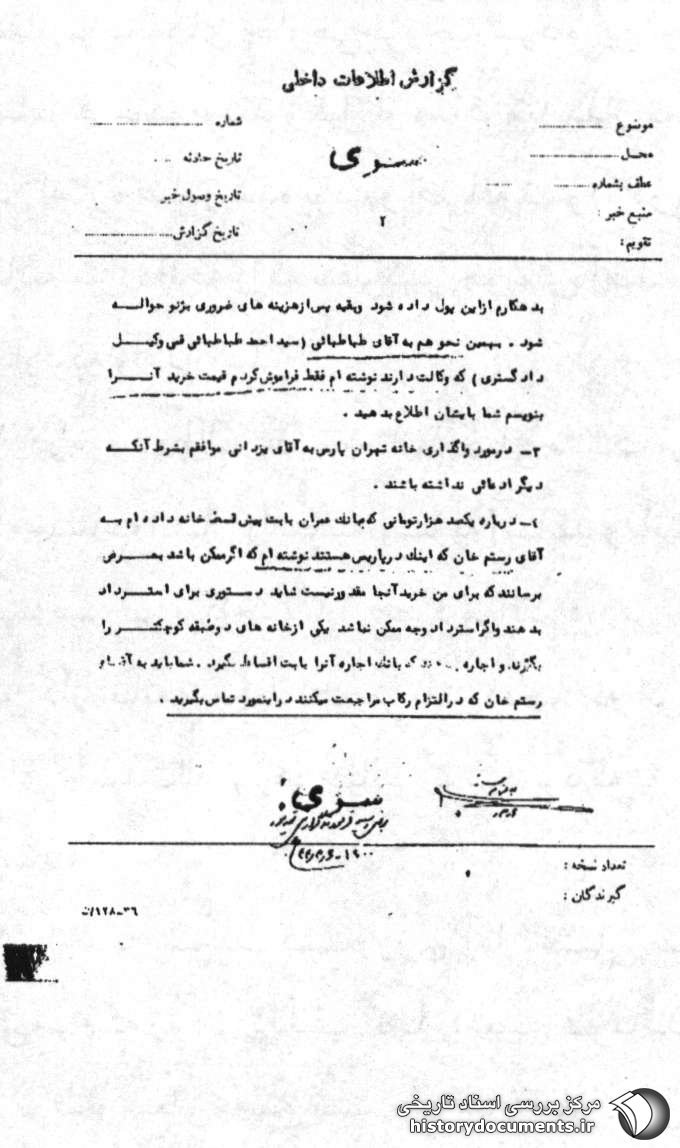 گزارش اطلاعات داخلی
موضوع
محل
عطف بشماره
منبع خبر :
تقویم :
سری
۲
شماره
تاریخ حادثه
تاریخ وصول خبر
تاریخ گزارش
بدهکارم ازاین پول داده شود وبقیه پس ازهزینه های ضروری بژنو حوالـــه
شود . بهمین نحو هم به آقای طباطبائی (سید احمد طباطبائی قمی وکیــل
دادگستری ) که وکالت دارند نوشته ام فقط فراموش کردم قیمت خرید آنـــرا
بنویسم شما بایشان اطلاع بدهید .
۳ــ درمورد واگذاری خانه تهران پارس به آقای یزدانی موافقم بشرط آنکـــه
دیگر ادعائی نداشته باشند .
٤ــ درباره یکصد هزارتومانی که ببانک عمران بابت پیش قسط خانه داده ام بــه
آقای رستم خان که اینک درپاریس هستند نوشته ام که اگرممکن باشد بعـــرض
برسانند که برای من خرید آنجا مقدور نیست شاید دستوری برای استــرداد
بدهند واگر استرداد وجه ممکن نباشد یکی ازخانه های دوطبقه کوچکتـــر را
بگیرند و اجاره که بانک اجاره آنرا بابت اقساط بگیرد . شما باید به آقای
رستم خان که در التزام رکاب مراجعت میکنند دراینمورد تماس بگیرید .
سری
تعداد نسخه :
گیرندگان :
۳٦-۱۲۸/ث
مرکز بررسی اسناد تاریخی
historydocuments.ir